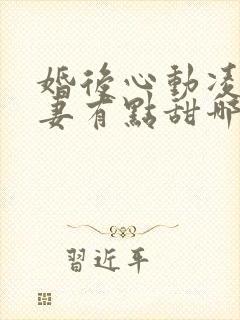 婚後心動凌
妻有點甜哪
習近平